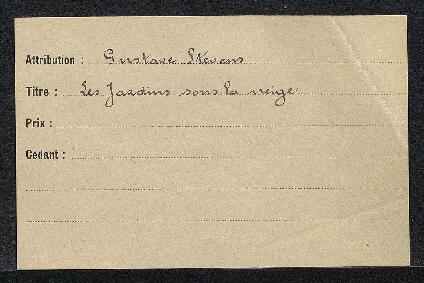 Attribution : Gustave Stevens
Titre : Les Jardins sous la neige
Prix :
Cédant :